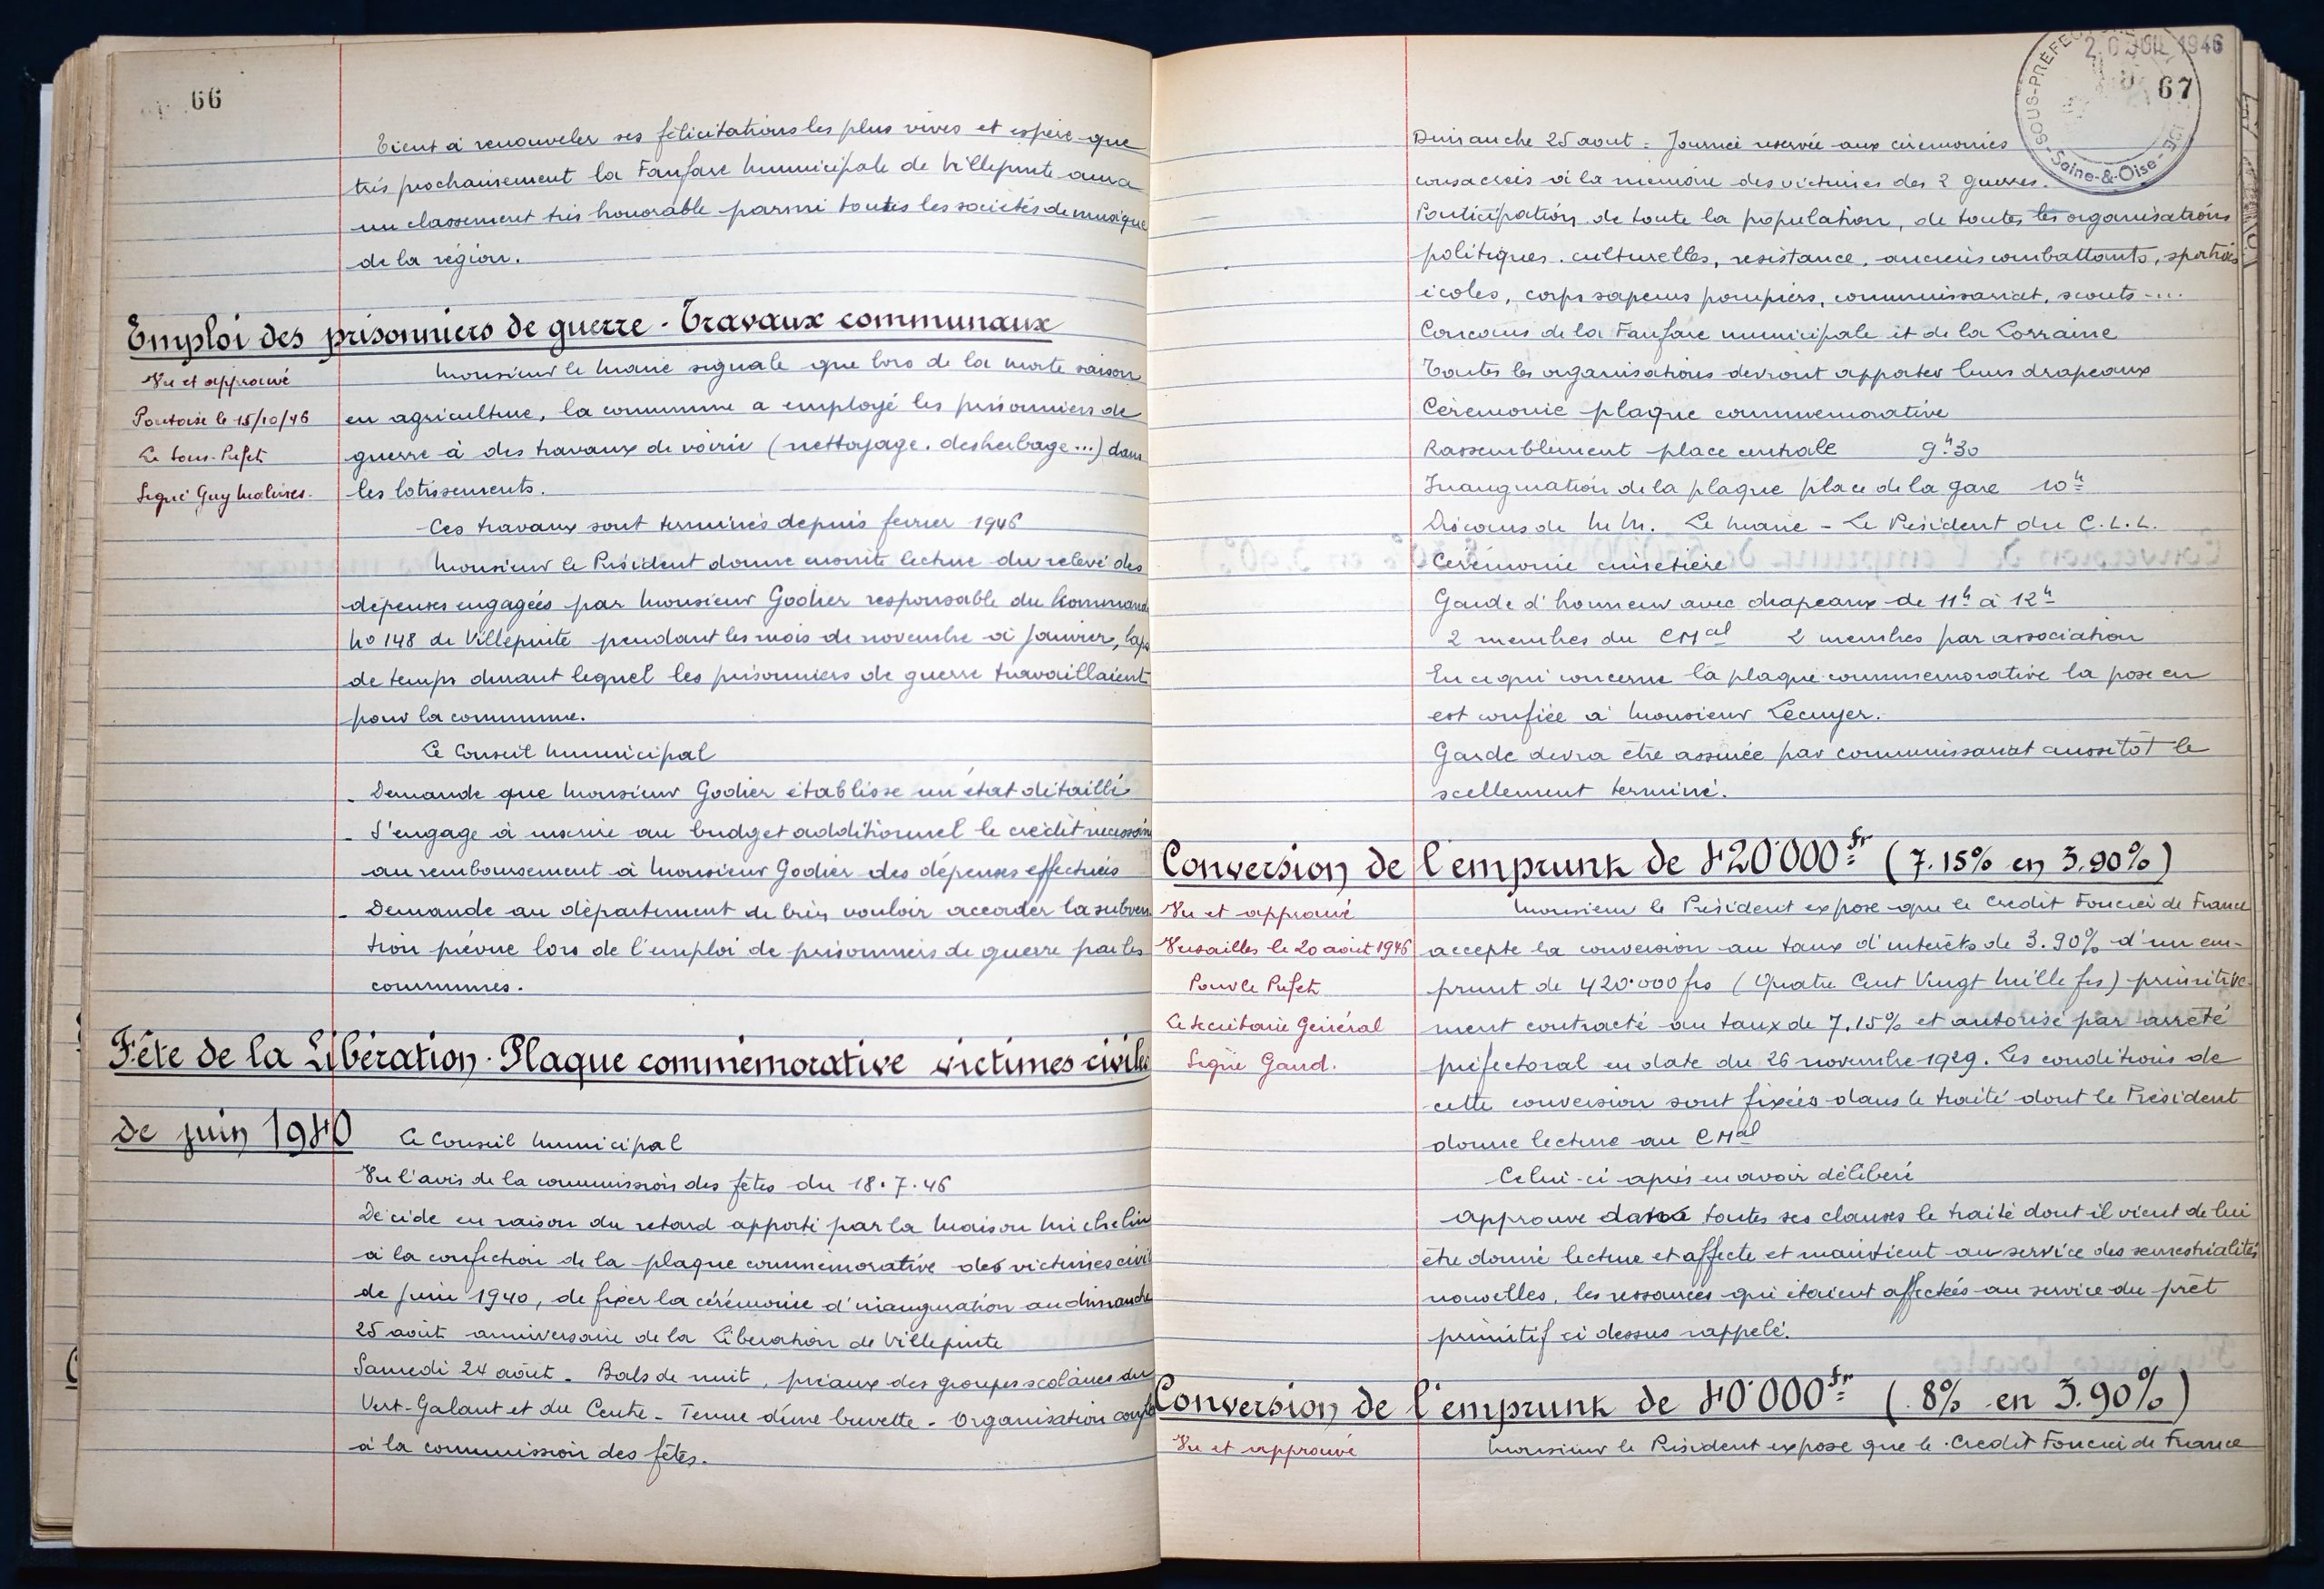 66
Tient à renouveler ses félicitations les plus vives et espère que
très prochainement la Fanfare Municipale de Villepinte aura
un classement très honorable parmi toutes les sociétés de musique
de la région.
Emploi des prisonniers de guerre - Travaux communaux
Vu et approuvé
Pontoise le 15/10/46
Le Sous-Préfet
Signé Guy
Monsieur le Maire signale que lors de la morte saison
en agriculture, la commune a employé les prisonniers de
guerre à des travaux de voirie (nettoyage. desherbage...) dans
les lotissements.
Ces travaux sont terminés depuis fevrier 1946
Monsieur le Président donne ensuite lecture du relevé des
dépenses engagées par Monsieur Godier responsable du Kommando
No 148 de Villepinte pendant les mois de novembre à Janvier, laps
de temps durant lequel les prisonniers de guerre travaillaient
pour la commune.
Le Conseil Municipal
- Demande que Monsieur Godier établisse un état détaillé
- S'engage à inscrire au budget additionnel le crédit necessaire
au remboursement à Monsieur Godier des dépenses effectuées
- Demande au département de bien vouloir accorder la subven
tion prévue lors de l'emploi de prisonniers de guerre par les
communes.
Fête de la Libération - Plaque commémorative victimes civiles
de juin 1940
Le Conseil Municipal
Vu l'avis de la commission des fêtes du 18.7.46
Décide en raison du retard apporté par la Maison Michelin
à la confection de la plaque commémorative des victimes civiles
de Juin 1940, de fixer la cérémonie d'inauguration au dimanche
25 août anniversaire de la Libération de Villepinte
Samedi 24 août - Bals de nuit, préaux des groupes scolaires du
Vert-Galant et du Centre - Tenue d'une buvette - Organisation
à la commission des fêtes.
20 JUIL 1946
67
SOUS-PRÉFECTURE
Seine-&-Oise
Dimanche 25 aout = Journée reservée aux cérémonies
consacrées à la mémoire des victimes des 2 guerres.
Participation de toute la population, de toutes les organisations
politiques. culturelles, resistance, anciens combattants, sportives
écoles, corps sapeurs pompiers, commissariat, scouts....
Concours de la Fanfare municipale et de la Lorraine
Toutes les organisations devront apporter leurs drapeaux
Cérémonie plaque commemorative
Rassemblement place centrale 9h30
Inauguration de la plaque place de la gare 10h
Discours de M M. Le Maire - Le Président du C.L.L.
Cérémonie cimetière
Garde d'honneur avec drapeaux de 11h à 12h
2 membres du CMal 2 membres par association
En ce qui concerne la plaque commemorative la pose en
est confiée à Monsieur Lecuyer.
Garde devra être assurée par commissariat aussitôt le
scellement terminé.
Conversion de l'emprunt de 420.000 fr (7.15% en 3.90%)
Vu et approuvé
Versailles le 20 août 1946
Pour le Préfet
Le Secrétaire Général
Signé Gand.
Monsieur le Président expose que le Credit Foncier de France
accepte la conversion au taux d'intérêts de 3.90% d'un em-
prunt de 420.000 frs (Quatre Cent Vingt Mille frs) primitive-
ment contracté au taux de 7.15% et autorisé par arrêté
préfectoral en date du 26 novembre 1929. Les conditions de
cette conversion sont fixées dans le traité dont le Président
donne lecture au CMal
Celui-ci après en avoir délibéré
approuve dans toutes ses clauses le traité dont il vient de lui
être donné lecture et affecte et maintient au service des semestrialités
nouvelles, les ressources qui étaient affectées au service du prêt
primitif ci dessus rappelé.
Conversion de l'emprunt de 40.000 fr (8% en 3.90%)
Vu et approuvé
Monsieur le Président expose que le Credit Foncier de France